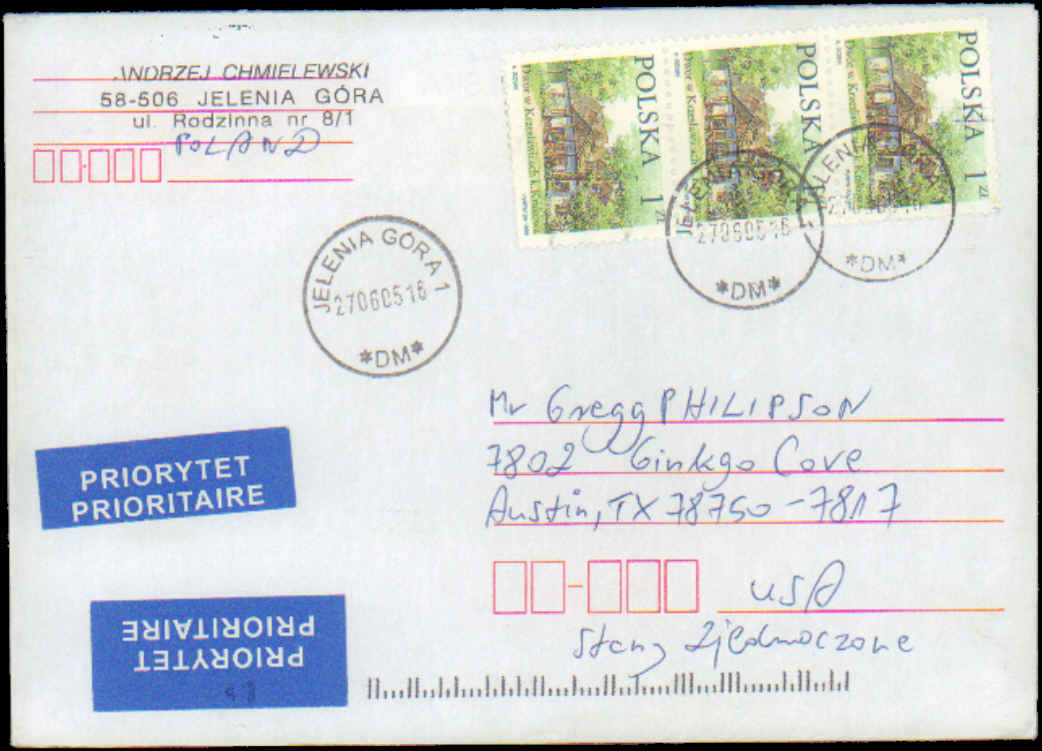 ANDRZEJ CHMIELEWSKI
58-506 JELENIA GÓRA
ul. Rodzinna nr 8/1
POLAND
POLSKA
1 zł
Dwór w Krzesławicach k. Krakowa
POLSKA
1 zł
Dwór w Krzesławicach k. Krakowa
POLSKA
1 zł
Dwór w Krzesławicach k. Krakowa
JELENIA GÓRA 1
27060516
*DM*
JELENIA GÓRA 1
27060516
*DM*
JELENIA GÓRA 1
27060516
*DM*
Mr Gregg PHILIPSON
7802 Ginkgo Cove
Austin, TX 78750-7817
USA
Stany Zjednoczone
PRIORYTET
PRIORITAIRE
PRIORYTET
PRIORITAIRE